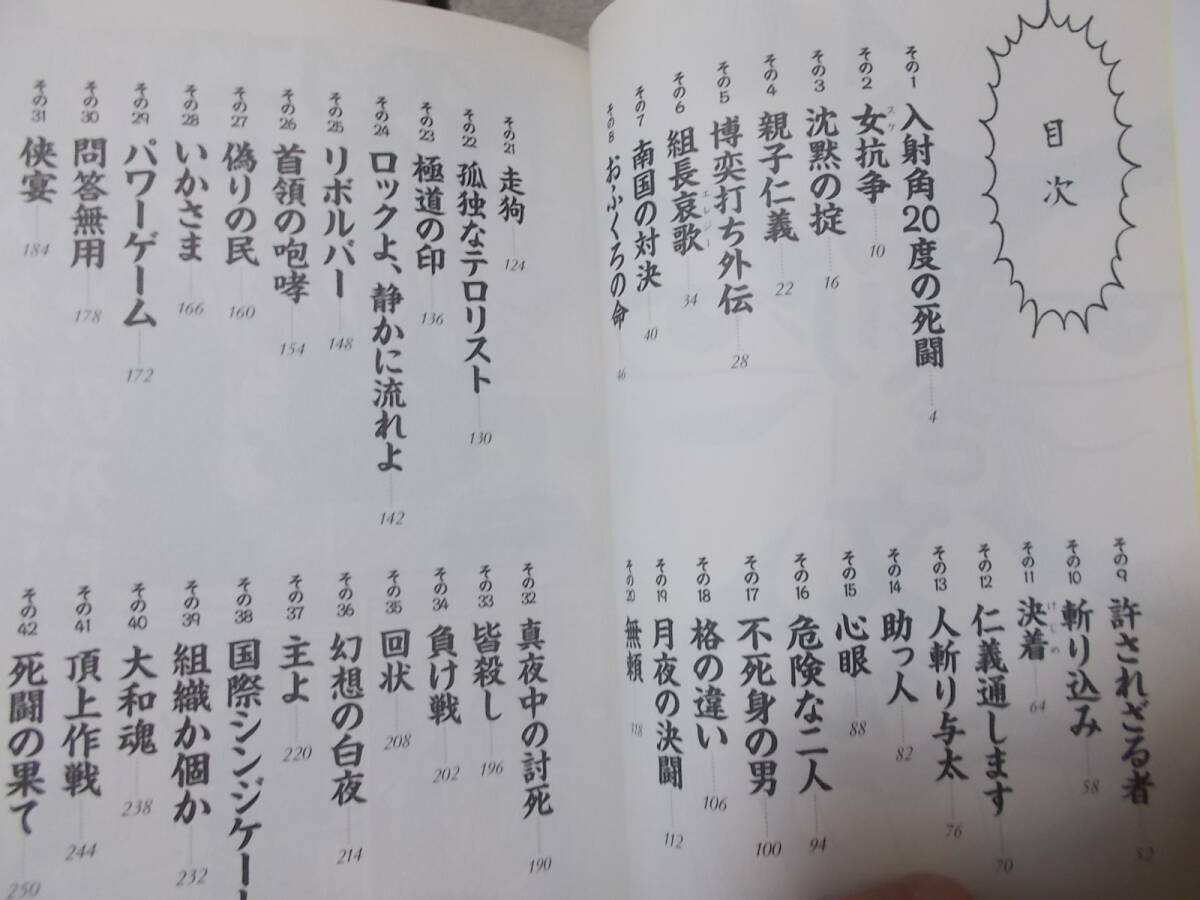 目次
その1 入射角20度の死闘 4
その2 女抗争 10
スケ
その3 沈黙の掟 16
その4 親子仁義 22
その5 博奕打ち外伝 28
その6 組長哀歌 34
エレジー
その7 南国の対決 40
その8 おふくろの命 46
その9 許されざる者 52
その10 斬り込み 58
その11 決着 64
けじめ
その12 仁義通します 70
その13 人斬り与太 76
その14 助っ人 82
その15 心眼 88
その16 危険な二人 94
その17 不死身の男 100
その18 格の違い 106
その19 月夜の決闘 112
その20 無頼 118
その21 走狗 124
その22 孤独なテロリスト 130
その23 極道の印 136
その24 ロックよ、静かに流れよ 142
その25 リボルバー 148
その26 首領の咆哮 154
その27 偽りの民 160
その28 いかさま 166
その29 パワーゲーム 172
その30 問答無用 178
その31 侠宴 184
その32 真夜中の討死 190
その33 皆殺し 196
その34 負け戦 202
その35 回状 208
その36 幻想の白夜 214
その37 主よ 220
その38 国際シンジケー
その39 組織か個か 232
その40 大和魂 238
その41 頂上作戦 244
その42 死闘の果て 250